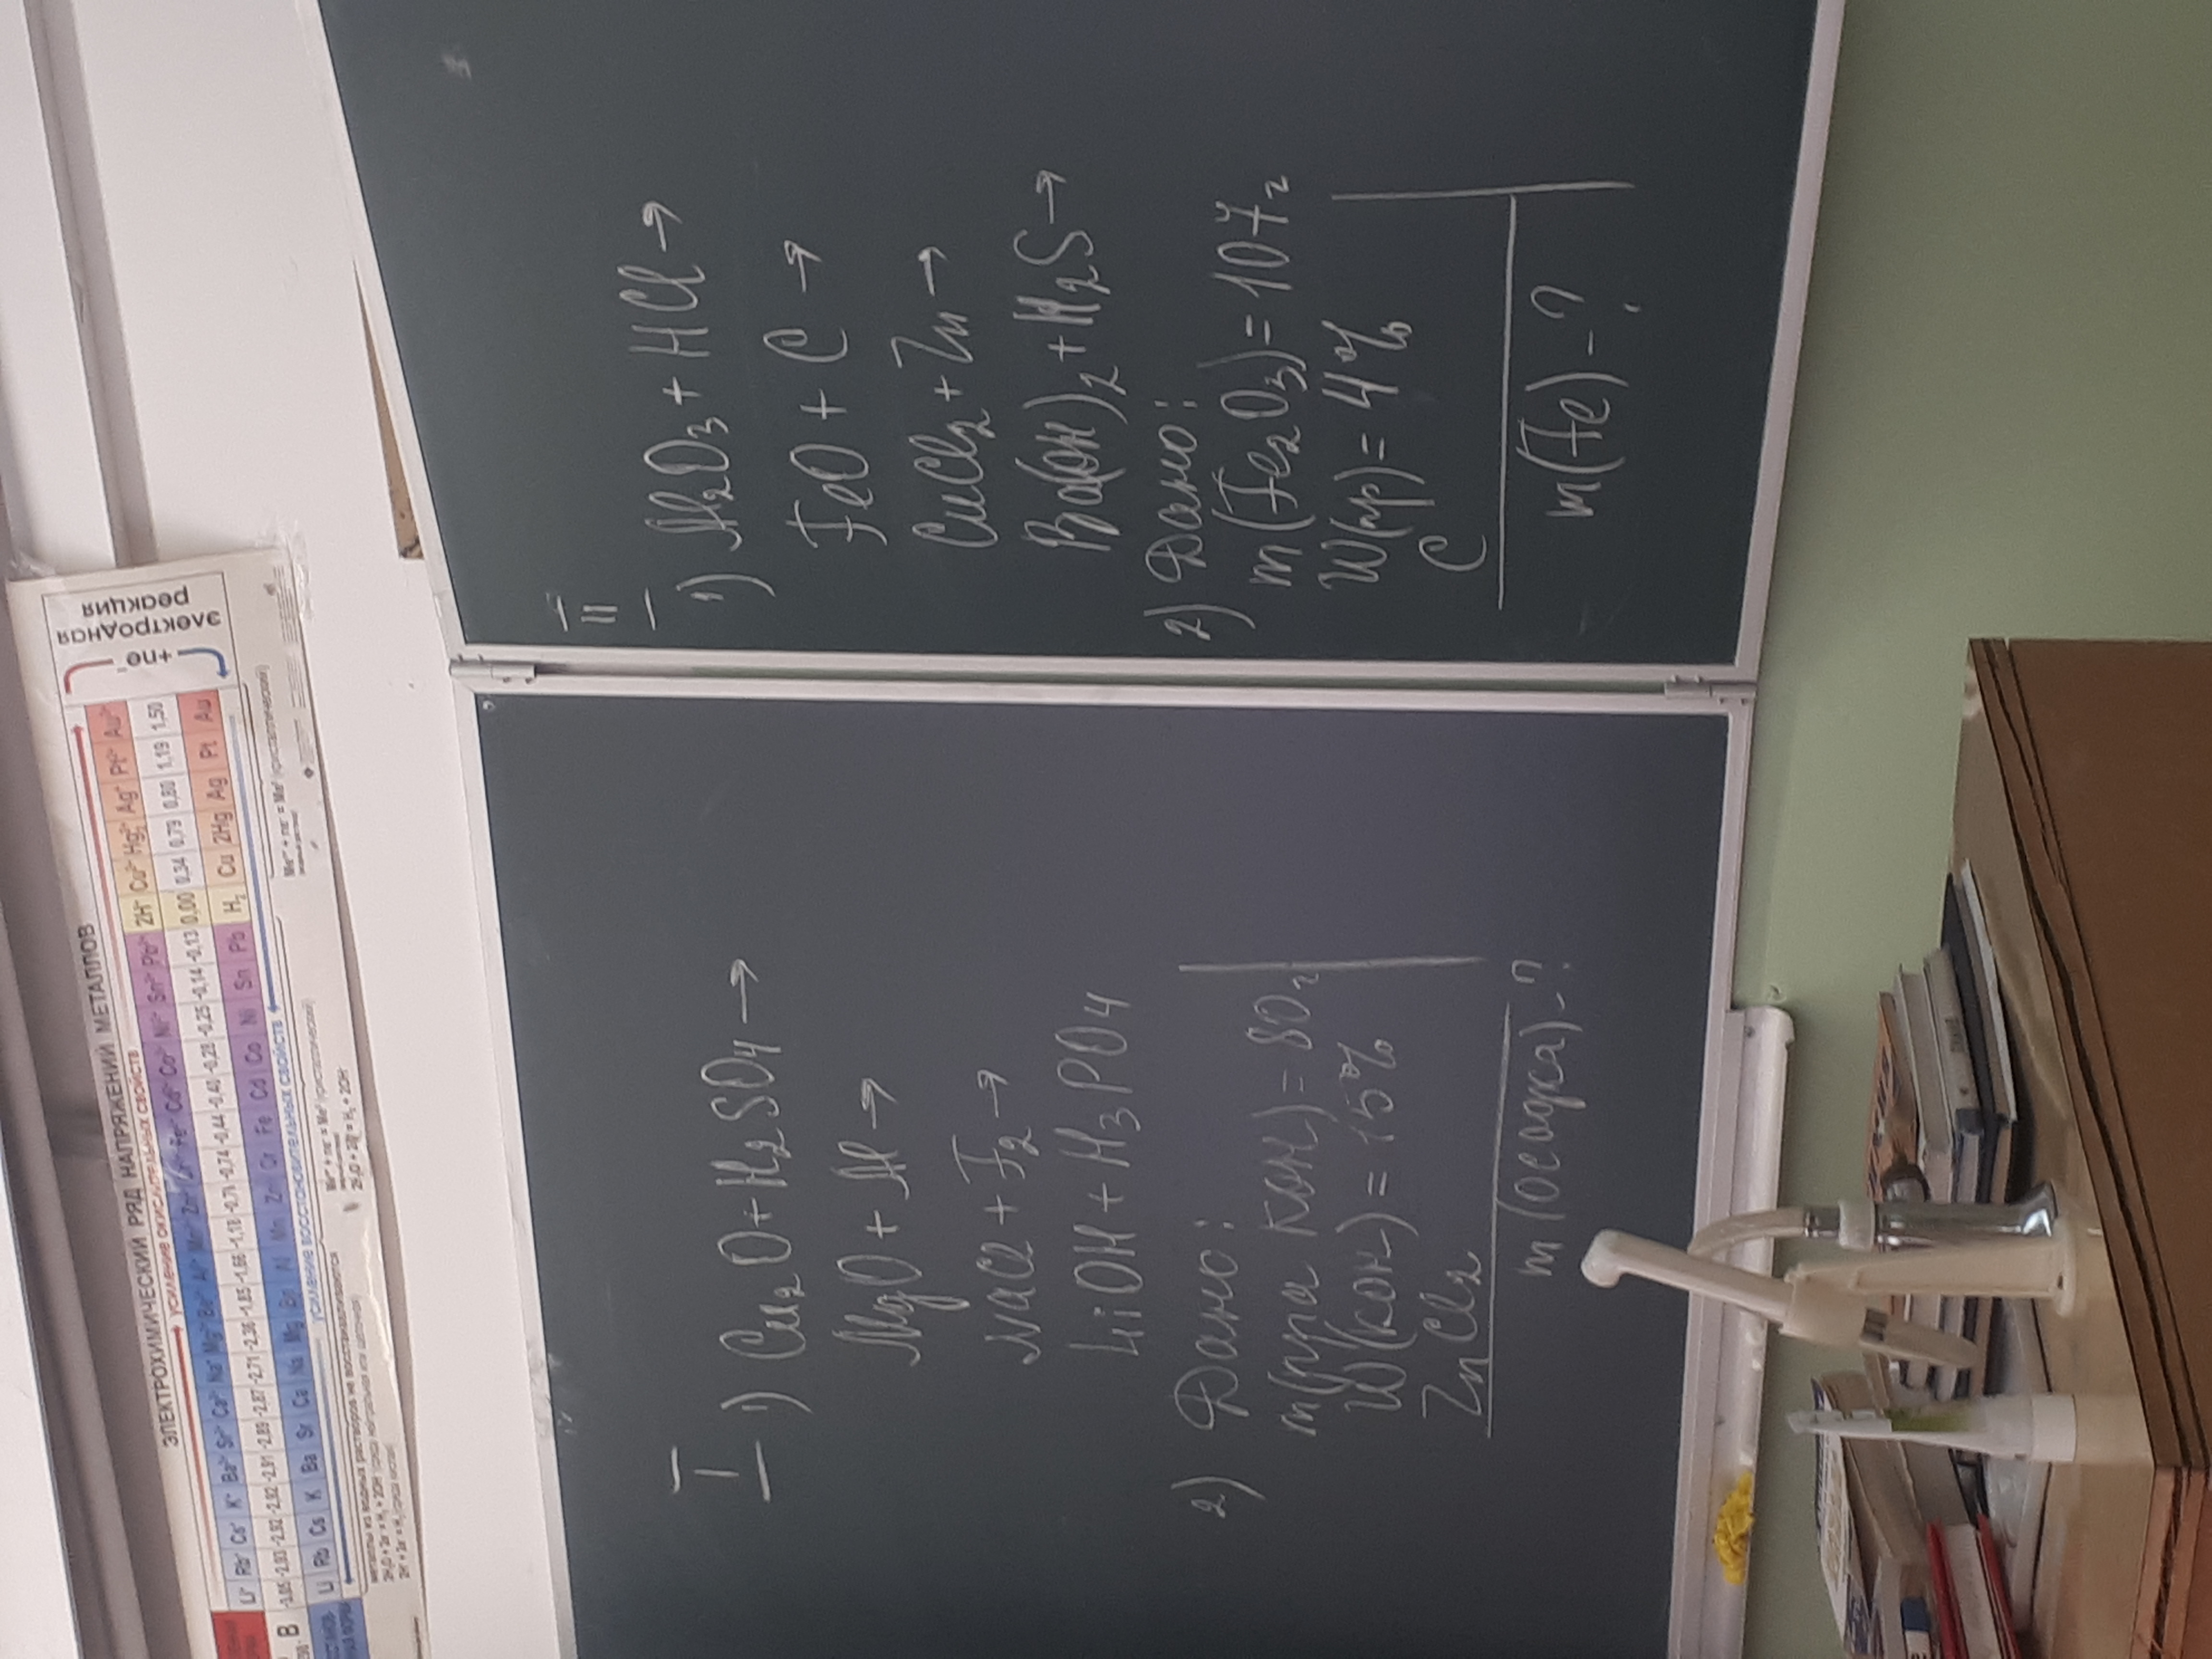 ЭЛЕКТРОХИМИЧЕСКИЙ РЯД НАПРЯЖЕНИЙ МЕТАЛЛОВ
усиление окислительных свойств
Li⁺ Rb⁺ Cs⁺ K⁺ Ba²⁺ Sr²⁺ Ca²⁺ Na⁺ Mg²⁺ Be²⁺ Al³⁺ Mn²⁺ Zn²⁺ Cr³⁺ Fe²⁺ Cd²⁺ Co²⁺ Ni²⁺ Sn²⁺ Pb²⁺ 2H⁺ Cu²⁺ Hg₂²⁺ Ag⁺ Pt²⁺ Au³⁺
В -3,05 -2,93 -2,92 -2,92 -2,91 -2,89 -2,87 -2,71 -2,36 -1,85 -1,66 -1,18 -0,76 -0,74 -0,44 -0,40 -0,28 -0,25 -0,14 -0,13 0,00 0,34 0,79 0,80 1,19 1,50
Li Rb Cs K Ba Sr Ca Na Mg Be Al Mn Zn Cr Fe Cd Co Ni Sn Pb H₂ Cu 2Hg Ag Pt Au
усиление восстановительных свойств
электродная
реакция
+ne⁻
I
1) Cu₂O + H₂SO₄ →
MgO + Al →
NaCl + F₂ →
LiOH + H₃PO₄
2) Дано:
m(р-ра KOH) = 80г
W(KOH) = 15%
ZnCl₂
m(осадка) - ?
II
1) Al₂O₃ + HCl →
FeO + C →
CuCl₂ + Zn →
Ba(OH)₂ + H₂S →
2) Дано:
m(Fe₂O₃) = 107г
W(пр) = 4%
C
m(Fe) - ?